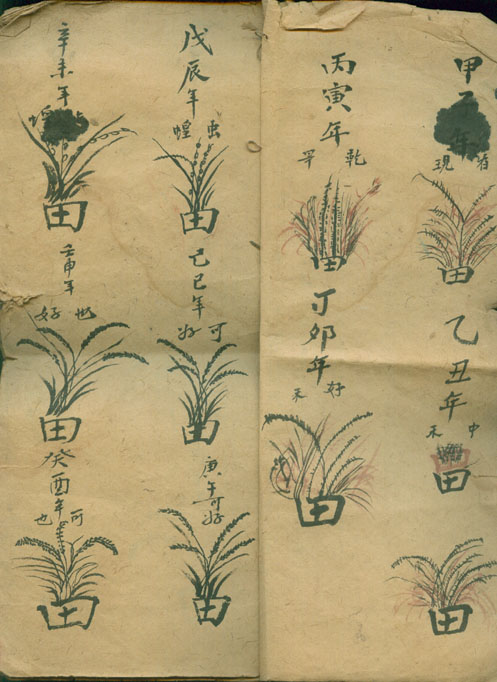 甲子年
現
田
乙丑年
中禾
田
田
丙寅年
乾旱
田
丁卯年
好禾
田
戊辰年
虫蝗
田
己巳年
可好
田
庚午
可好
田
辛未年
蝗
田
壬申年
也好
田
癸酉年
可也
田